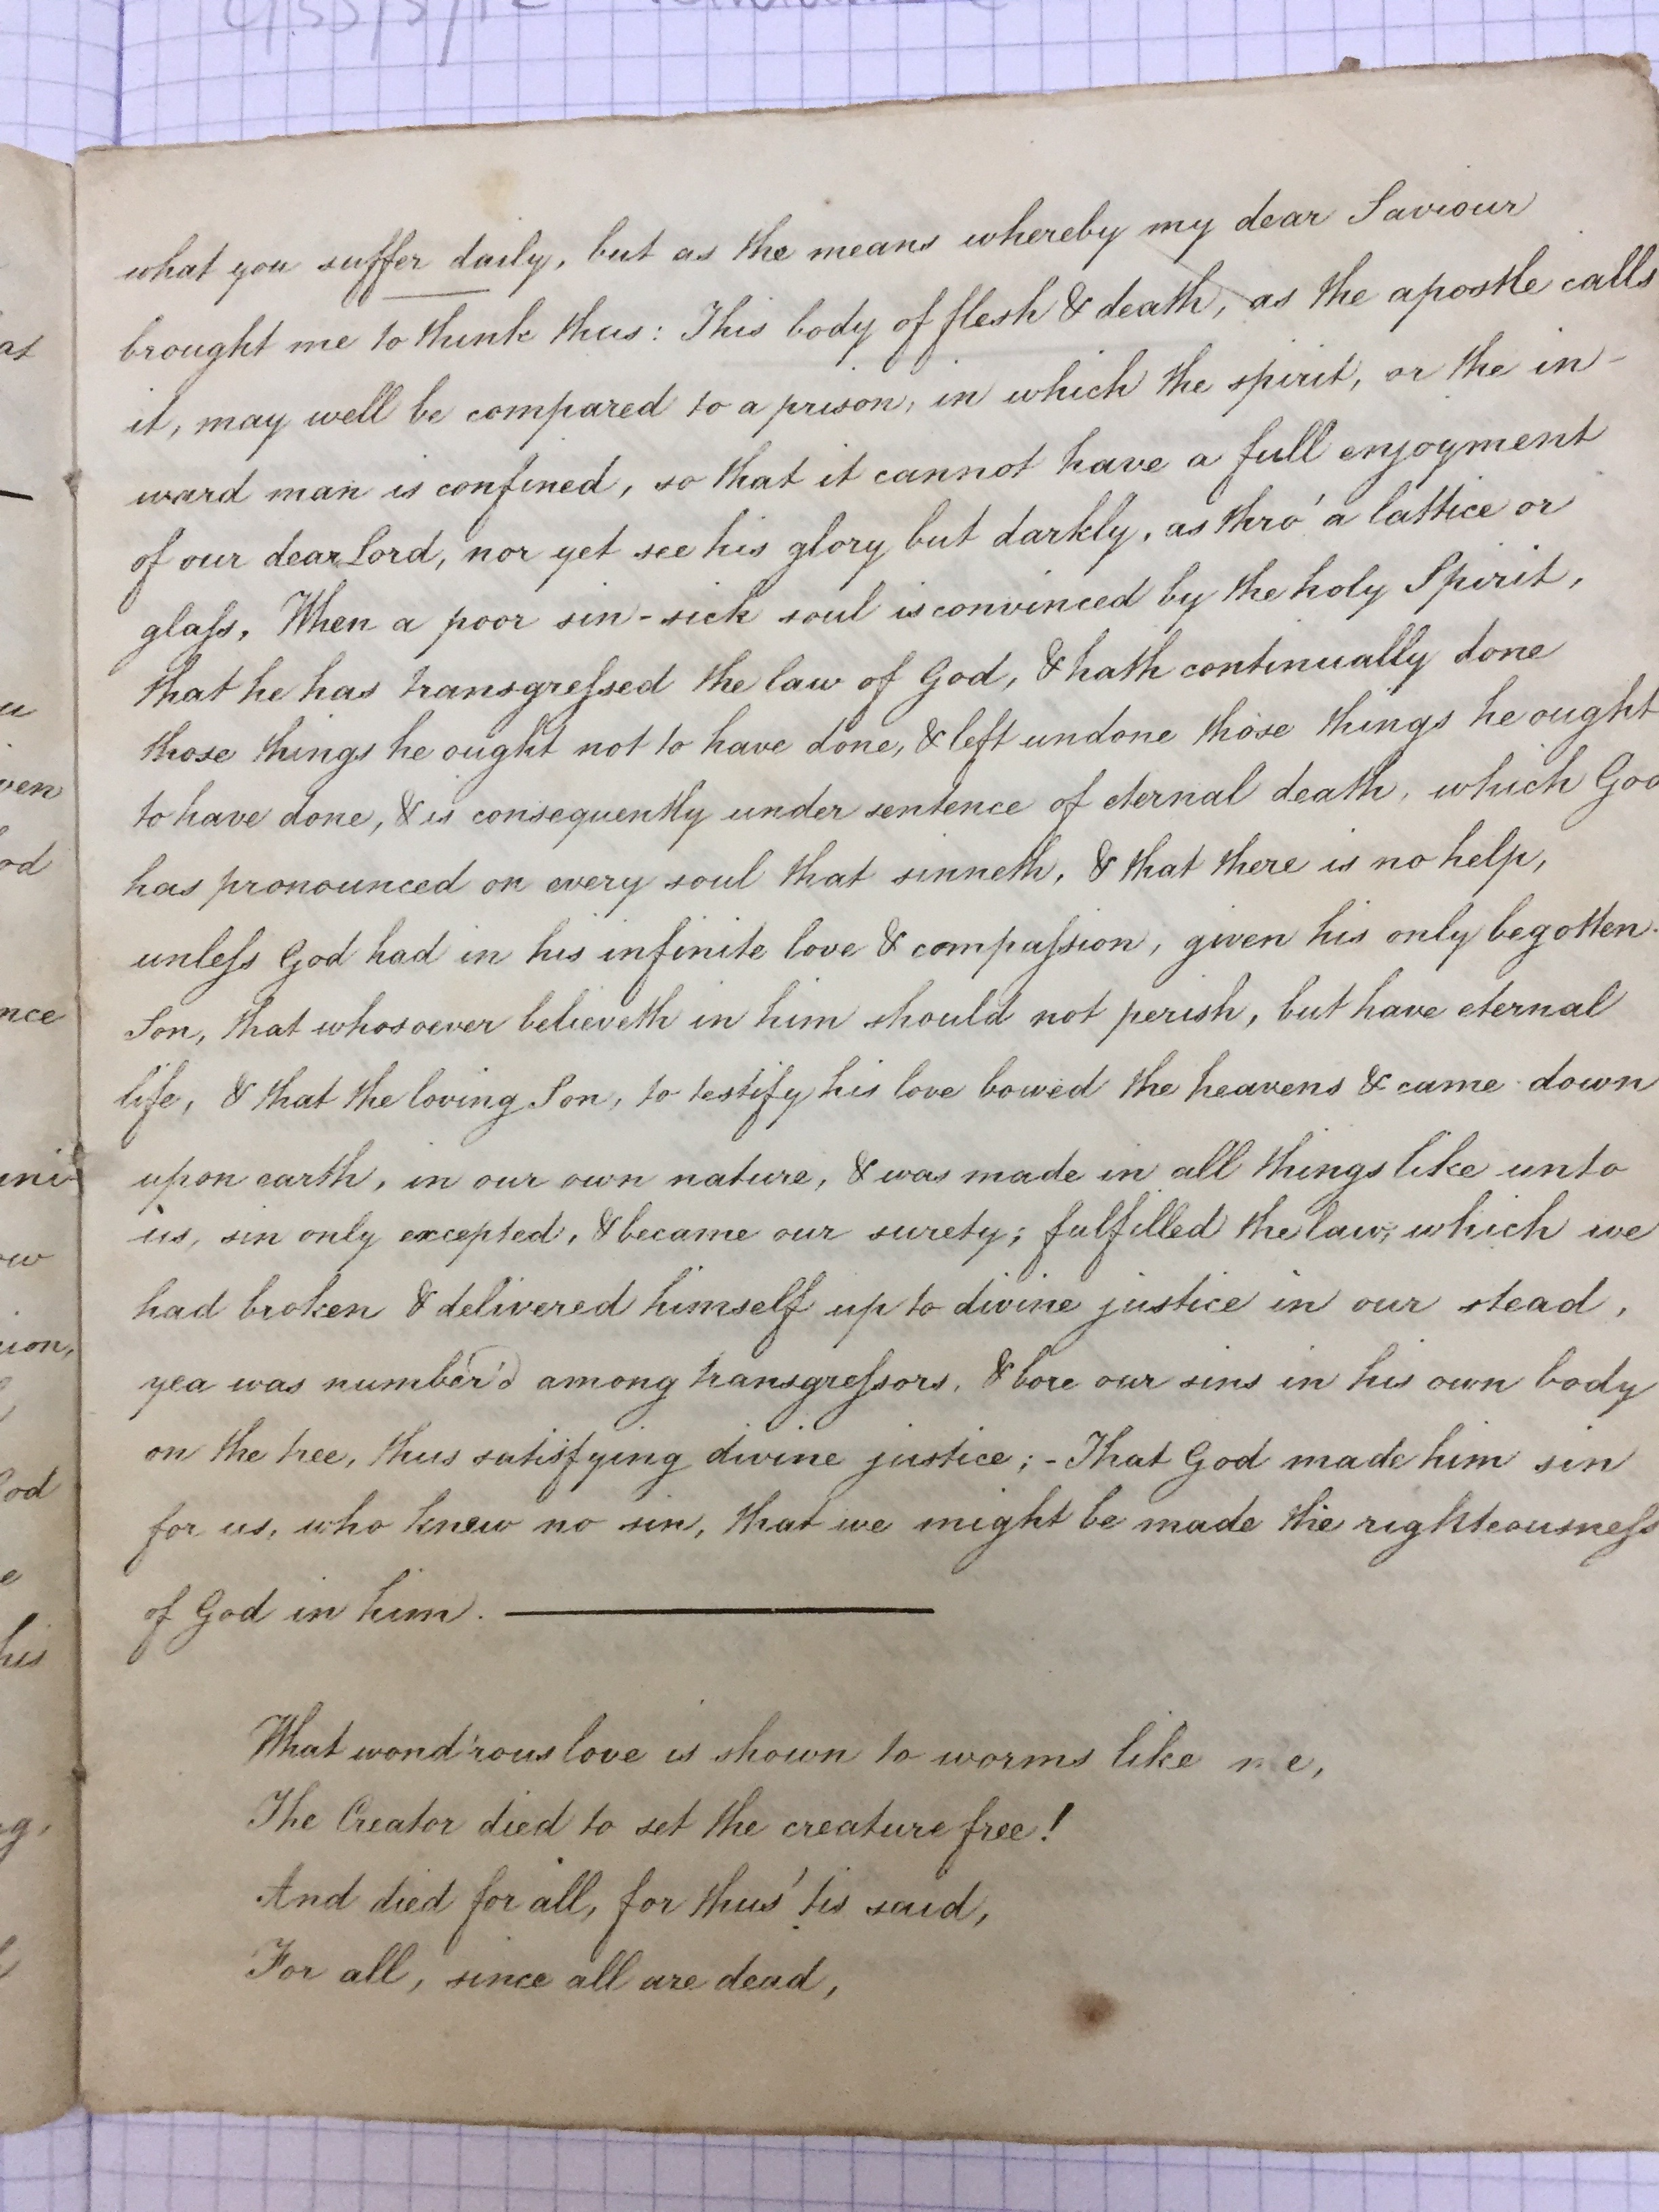 what you suffer daily, but as the means whereby my dear Saviour
brought me to think thus: This body of flesh & death, as the apostle calls
it, may well be compared to a prison, in which the spirit, or the in-
ward man is confined, so that it cannot have a full enjoyment
of our dear Lord, nor yet see his glory but darkly, as thro' a lattice or
glaſs. When a poor sin-sick soul is convinced by the holy Spirit,
that he has transgreſsed the law of God, & hath continually done
those things he ought not to have done, & left undone those things he ought
to have done, & is consequently under sentence of eternal death, which God
has pronounced on every soul that sinneth, & that there is no help,
unleſs God had in his infinite love & compaſsion, given his only begotten
Son, that whosoever believeth in him should not perish, but have eternal
life, & that the loving Son, to testify his love bowed the heavens & came down
upon earth, in our own nature, & was made in all things like unto
us, sin only excepted, & became our surety; fulfilled the law, which we
had broken & delivered himself up to divine justice in our stead,
yea was number'd among transgreſsors, & bore our sins in his own body
on the tree, thus satisfying divine justice; - That God made him sin
for us, who knew no sin, that we might be made the righteousneſs
of God in him. ———
What wond'rous love is shown to worms like me,
The Creator died to set the creature free!
And died for all, for thus 'tis said,
For all, since all are dead,